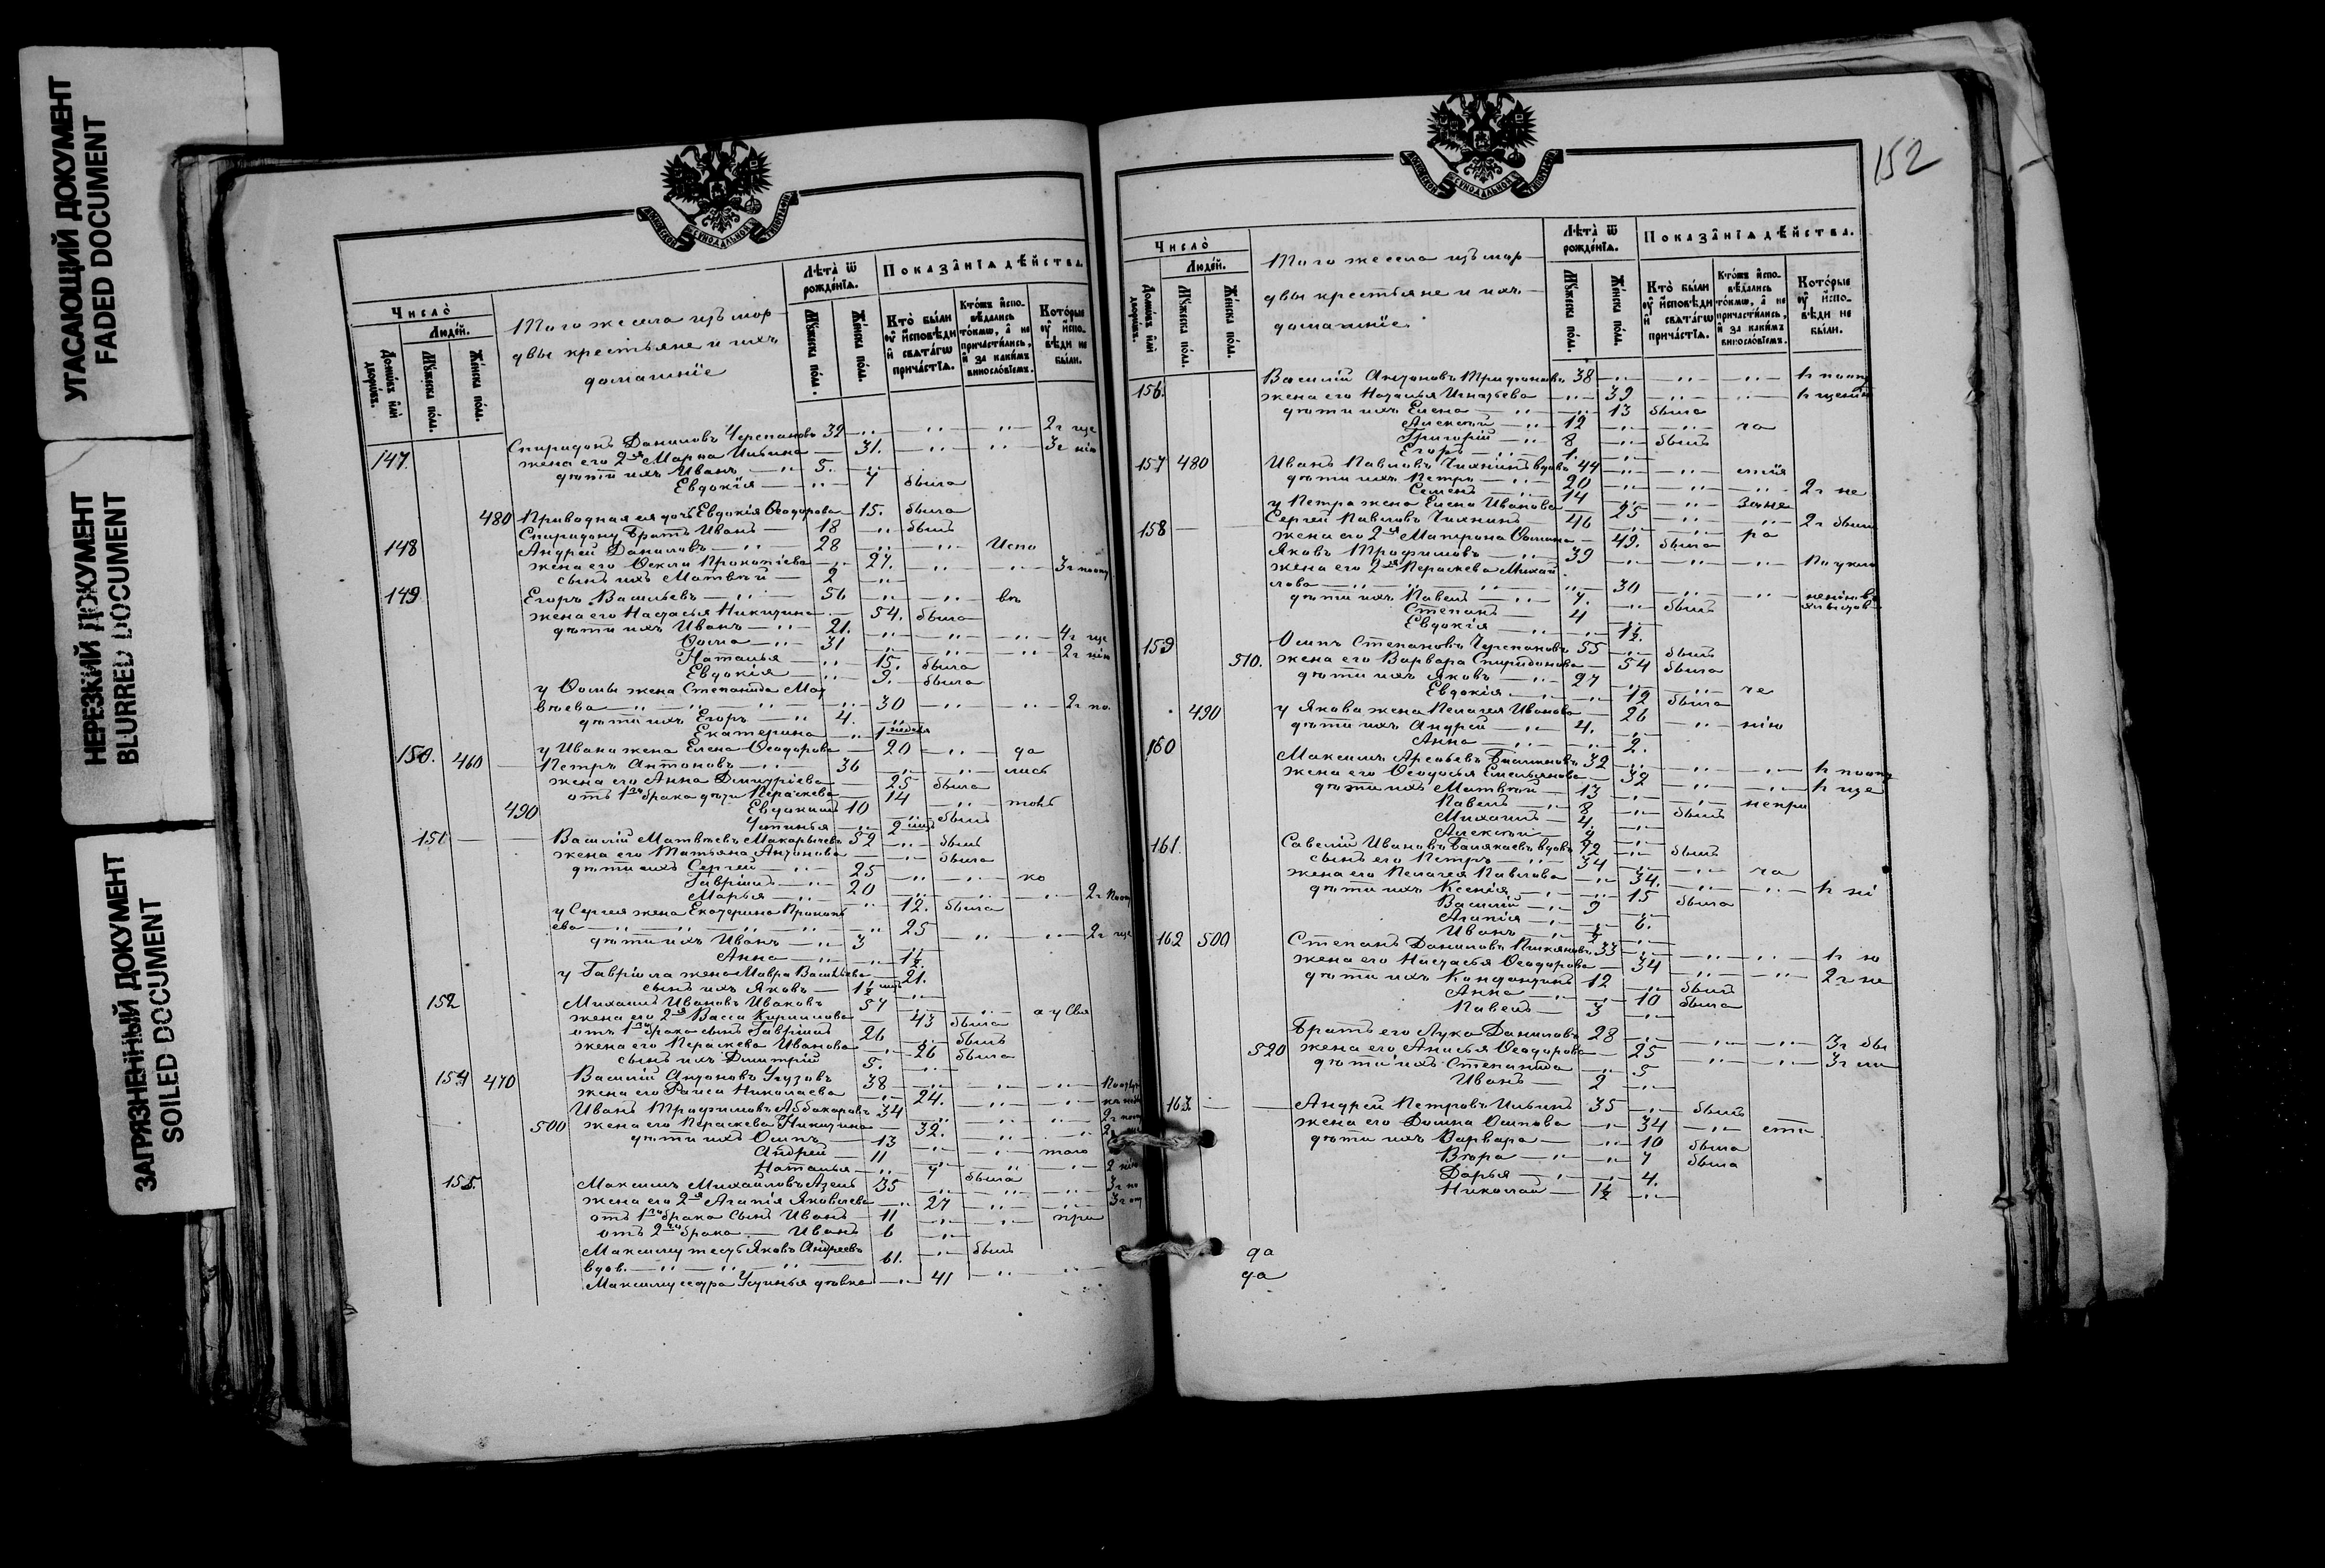 УГАСАЮЩИЙ ДОКУМЕНТ
FADED DOCUMENT
НЕРЕЗКИЙ ДОКУМЕНТ
BLURRED DOCUMENT
ЗАГРЯЗНЕННЫЙ ДОКУМЕНТ
SOILED DOCUMENT
Число̀
Людей.
Домовъ или дворовъ.
Мужеска полу.
Женска полу.
Того же села изъ мор
двы крестьяне и ихъ
домашніе
Лѣта ѿ рожденїя.
Мужеска полу.
Женска полу.
Показанїѧ дѣйства.
Кто были оу исповѣди и свѧтагѡ причастїѧ.
Ктожъ исповѣдались токмѡ, а не причастились, и за какимъ винословїемъ.
Которые оу исповѣди не были.
147. Спиридонъ Даниловъ Черепановъ 32 2 г ще
жена его 2я Марѳа Ильина 31. 3 г нію
дѣти ихъ Иванъ 5.
Евдокія 7 была
480 Приводная ея дочь Евдокія Ѳеодорова 15. была
Спиридону братъ Иванъ 18 былъ
148 Андрей Даниловъ 28 Испо
жена его Ѳекла Прокопіева 27. 3 г
сынъ ихъ Матвѣй 2
149 Егоръ Васильевъ 56 вѣ
жена его Настасья Никитина 54. была
дѣти ихъ Иванъ 21. 4 г ще
Ѳома 31 2 г нію
Наталья 15. была
Евдокія 9. была
у Ѳомы жена Степанида Мат
вѣева 30 2 г по
дѣти ихъ Егоръ 4.
Екатерина 1 недѣля
у Ивана жена Елена Ѳеодорова 20 да
150. 460 Петръ Антоновъ 36 лись
жена его Анна Дмитріева 25 была
отъ 1го брака дѣти Параскева 14 токъ
490 Евдокимъ 10 былъ
Устинья 2
151 Василій Матвѣевъ Макарычевъ 52 былъ
жена его Татьяна Антонова была
дѣти ихъ Сергѣй 25 ко
Гавріилъ 20 2 г
Марья 12. была
у Сергѣя жена Екатерина Прокопь
ева 25 2 г ще
дѣти ихъ Иванъ 3
Анна 1½
у Гавріила жена Мавра Васильева 21.
сынъ ихъ Яковъ 1½
152 Михаилъ Ивановъ Иваковъ 57 а у Свя
жена его 2я Васса Кириллова 43 была
отъ 1го брака сынъ Гавріилъ 26 былъ
жена его Параскева Иванова 26 была
сынъ ихъ Димитрій 5.
154 470 Василій Антоновъ Угузовъ 38
жена его Раиса Николаева 24.
Иванъ Трифиловъ Аббакаровъ 34 2 г
500 жена его Параскева Никитина 32.
дѣти ихъ Осипъ 13
Андрей 11 того
Наталья 7 была
155. Максимъ Михайловъ Азевъ 35 3 г по
жена его 2я Агапія Яковлева 27 3 г
отъ 1го брака сынъ Иванъ 11 при
отъ 2го брака Иванъ 6
Максиму тесть Яковъ Андреевъ
вдов. 61. былъ
Максиму сестра Устинья дѣвка 41
152
Число̀
Людей.
Домовъ или дворовъ.
Мужеска полу.
Женска полу.
Того же села изъ мор
двы крестьяне и ихъ
домашніе.
Лѣта ѿ рожденїя.
Мужеска полу.
Женска полу.
Показанїѧ дѣйства.
Кто были оу исповѣди и свѧтагѡ причастїѧ.
Ктожъ исповѣдались токмѡ, а не причастились, и за какимъ винословїемъ.
Которые оу исповѣди не были.
156. Василій Антоновъ Трифоновъ 38
жена его Наталья Игнатьева 39
дѣти ихъ Елена 13 была
Алексѣй 12 ча
Григорій 8 былъ
Егоръ 1.
157 480 Иванъ Павловъ Чихнинъ вдовъ 44 стія
дѣти ихъ Петръ 20
Семенъ 14 2 г не
у Петра жена Елена Иванова 25 за не
158 Сергѣй Павловъ Чихнинъ 46 2 г были
жена его 2я Матрона Ѳомина 49. была ра
Яковъ Трофимовъ 39
жена его 2я Параскева Михай
лова 30
дѣти ихъ Павелъ 7. былъ
Степанъ 4
Евдокія 1½.
159 Осипъ Степановъ Черепановъ 55 былъ
510. жена его Варвара Спиридонова 54 была
дѣти ихъ Яковъ 27 че
Евдокія 12 была
490 у Якова жена Пелагея Иванова 26 нію
дѣти ихъ Андрей 4.
Анна 2.
160 Максимъ Арсеньев 32
жена его Ѳеодосья Емельянова 32
дѣти ихъ Матвѣй 13 непри
Павелъ 8 былъ
Михаилъ 4.
Алексѣй 2
161. Савелій Ивановъ вдовъ 72 былъ
сынъ его Петръ 34 ча
жена его Пелагея Павлова 34.
дѣти ихъ Ксенія 15 была
Василій 9
Агапія 6.
Иванъ ½
162 500 Степанъ Даниловъ 33
жена его Настасья Ѳеодорова 34 2 г не
дѣти ихъ Кондратій 12 былъ
Анна 10 была
Павелъ 3
Братъ его Лука Даниловъ 28 3 г бы
520 жена его Анисья Ѳеодорова 25 3 г ли
дѣти ихъ Степанида 5
Иванъ 2
163. Андрей Петровъ Ильинъ 35 былъ
жена его Домна Осипова 34 сти
дѣти ихъ Варвара 10 была
Вѣра 7 была
Дарья 4.
Николай 1½
да
да